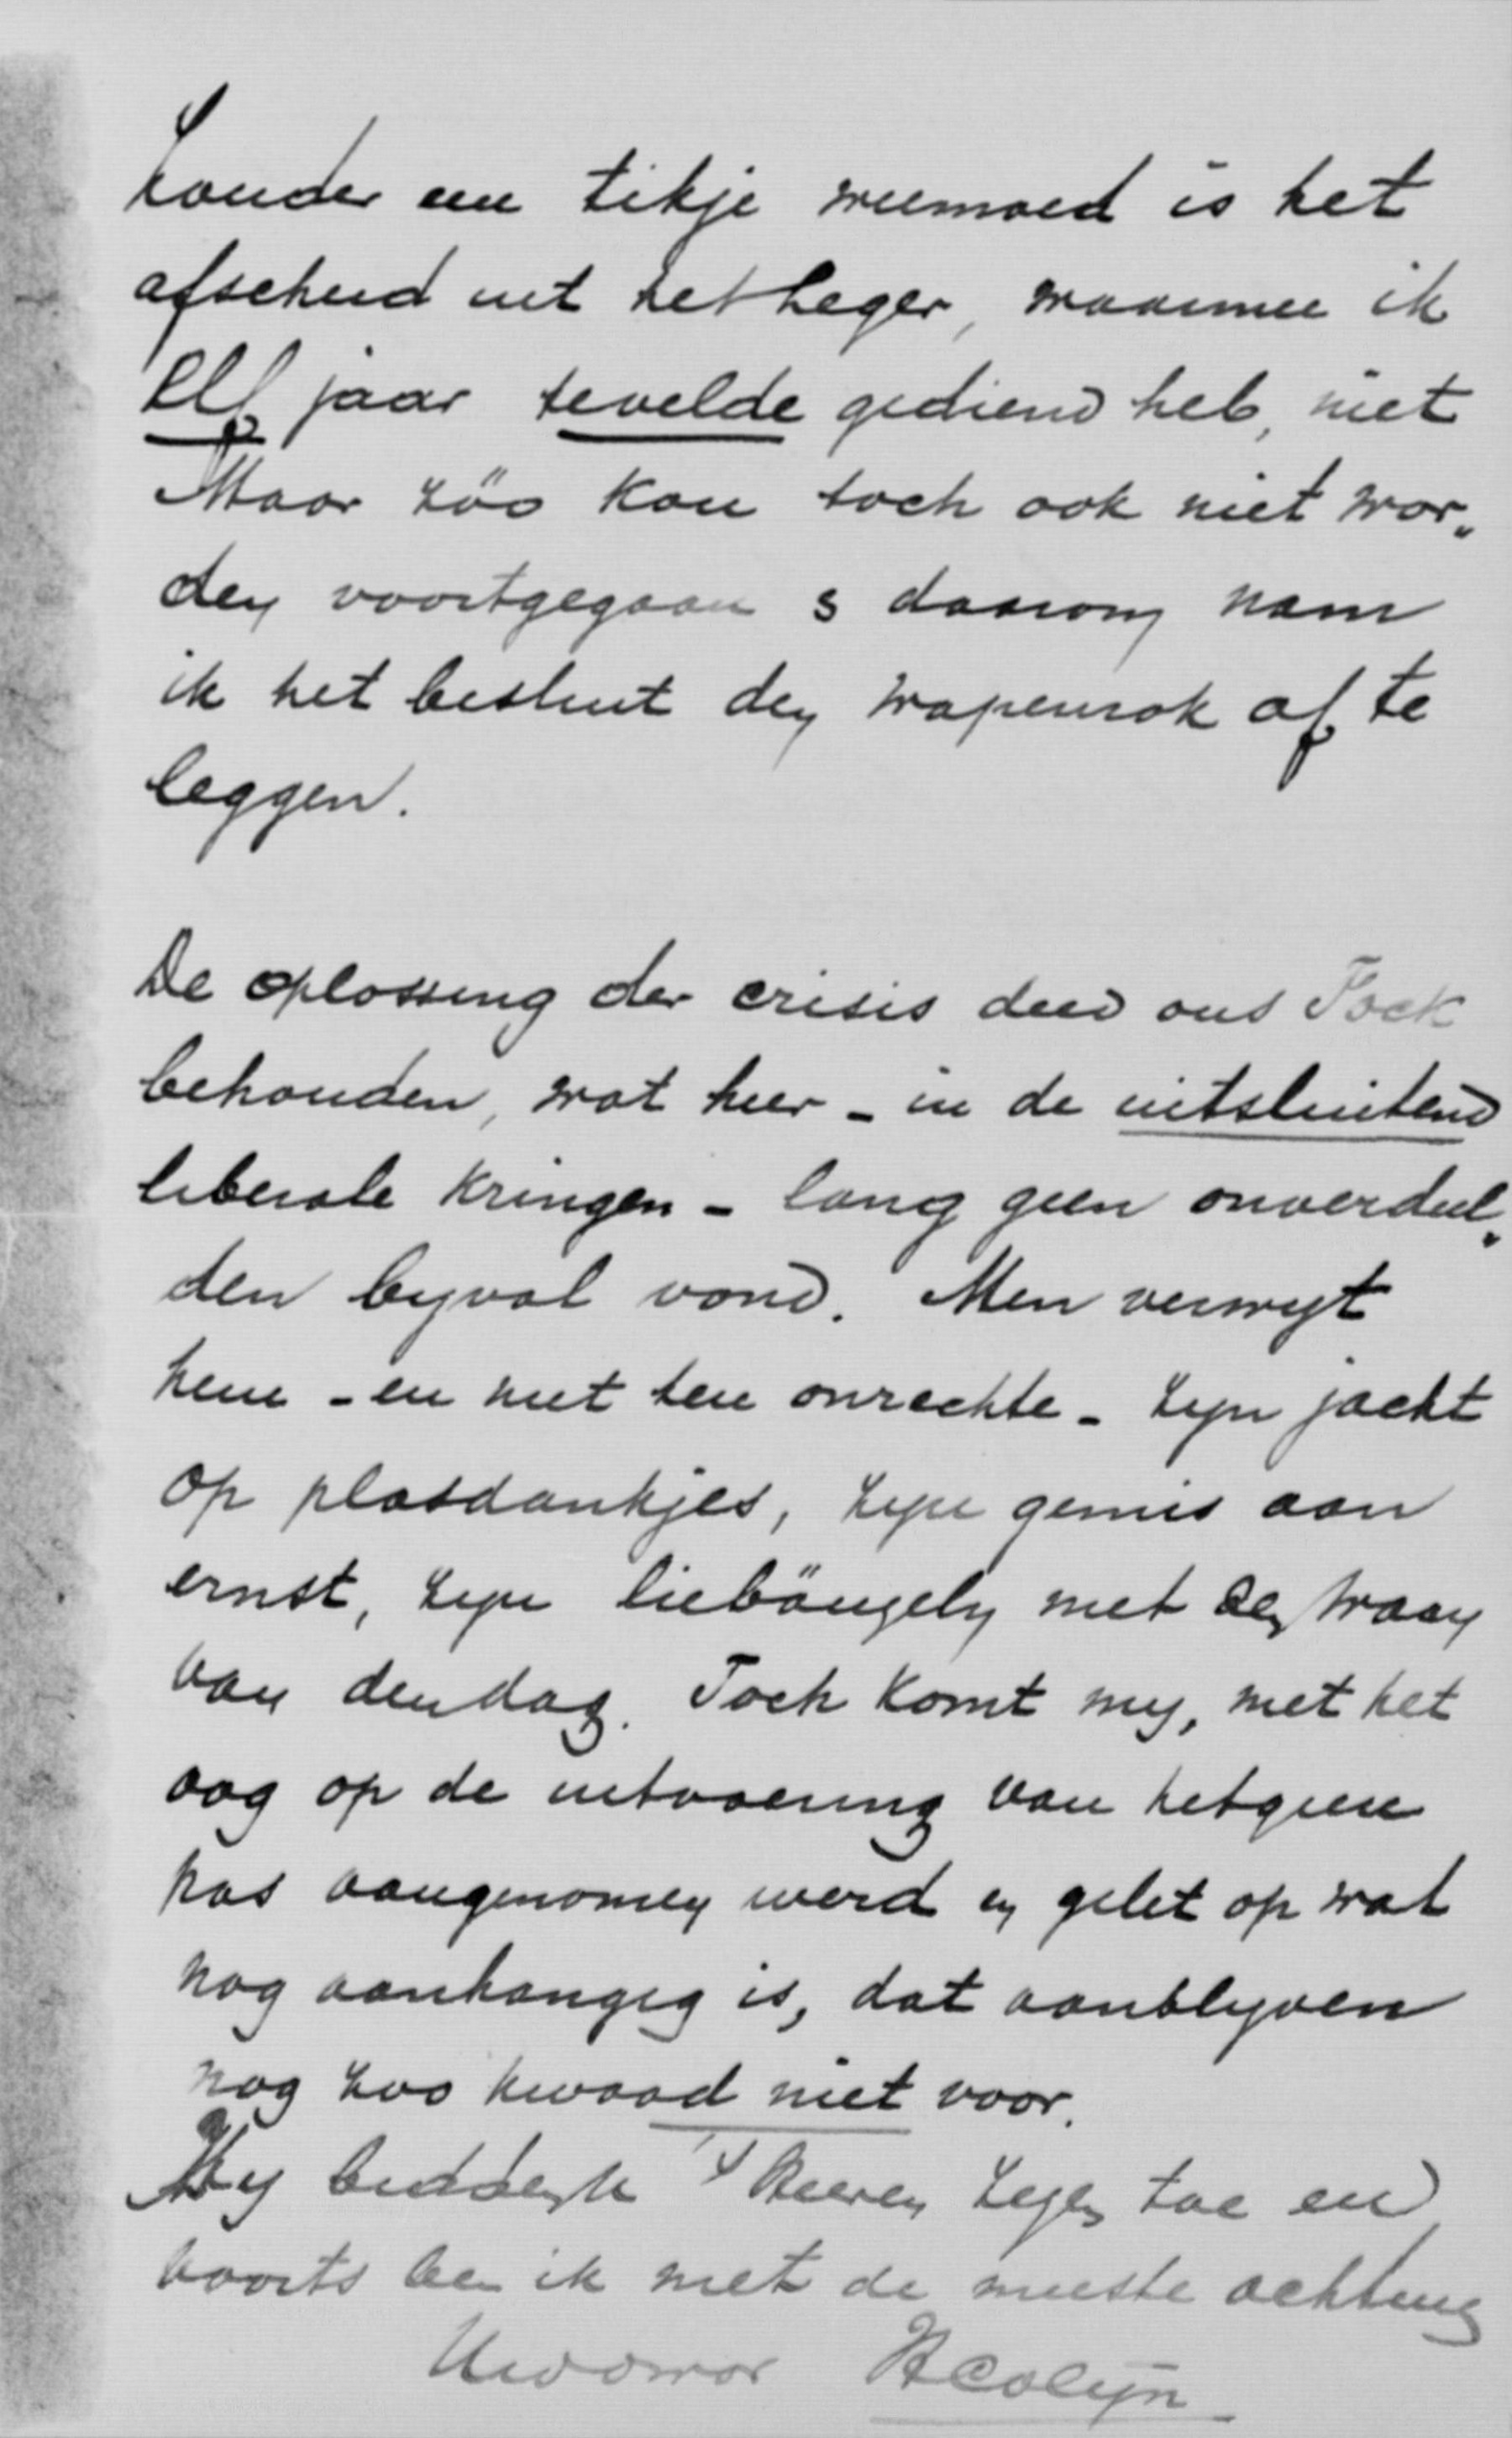 Zonder een tikje weemoed is het
afscheid uit het leger, waarmee ik
elf jaar tevelde gediend heb, niet
Maar zóó kon toch ook niet wor„
den voortgegaan & daarom nam
ik het besluit den wapenrok af te
leggen.
De oplossing der crisis deed ons Fock
behouden, wat hier - in de uitsluitend
liberale kringen - lang geen onverdeel„
den byval vond. Men verwyt
hem - en niet ten onrechte - zyn jacht
op plasdankjes, zyn gemis aan
ernst, zyn liebäugeln met den waan
van den dag. Toch komt my, met het
oog op de uitvoering van hetgeen
pas aangenomen werd en gelet op wat
nog aanhangig is, dat aanblyven
nog zoo kwaad niet voor.
My bidde ik 's Heeren zegen toe en
voorts ben ik met de meeste achting
Uwdwdr HColijn